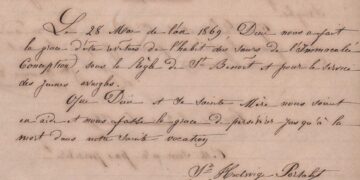 Le 28 Mai de l'an 1869, Dieu nous a fait
la grace d'être revêtues de l'habit des sœurs de l'Immaculée
Conception, sous la Règle de St Benoît et pour le service
des jeunes aveugles.
Que Dieu et Sa Sainte Mère nous soient
en aide et nous fasse la grace de persévérer jusqu'à la
mort dans notre sainte vocation
Sr Hedwige